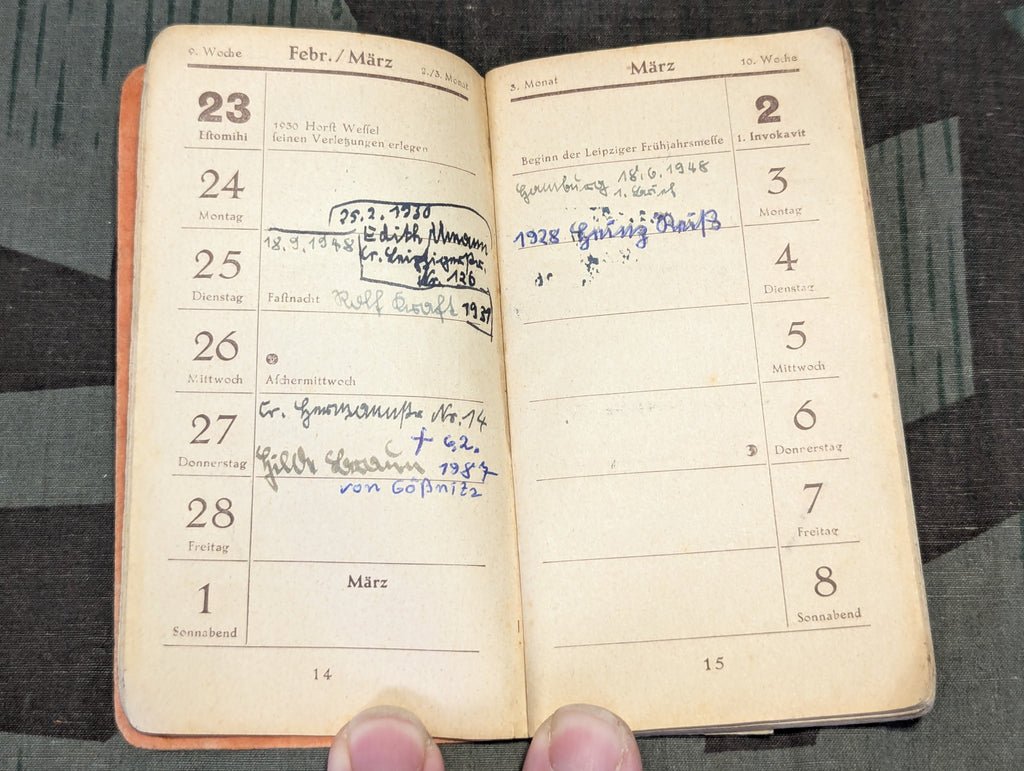 9. Woche Febr./März 2./3. Monat
23
Estomihi
1930 Horst Wessel
seinen Verletzungen erlegen
24
Montag
25.2.1930
Edith
18.9.1948
Cr. Leipzigerstr.
Nr. 126
25
Dienstag
Fastnacht Rolf Kraft 1931
26
Mittwoch
Aschermittwoch
27
Donnerstag
Cr. Hermannstr Nr. 14
+ 6.2.
Hilde Braun 1987
von Gößnitz
28
Freitag
März
1
Sonnabend
14
3. Monat März 10. Woche
2
1. Invokavit
Beginn der Leipziger Frühjahrsmesse
Hamburg 18.6.1948
1. Brief
3
Montag
1928 Heinz Reiß
4
Dienstag
5
Mittwoch
6
Donnerstag
7
Freitag
8
Sonnabend
15